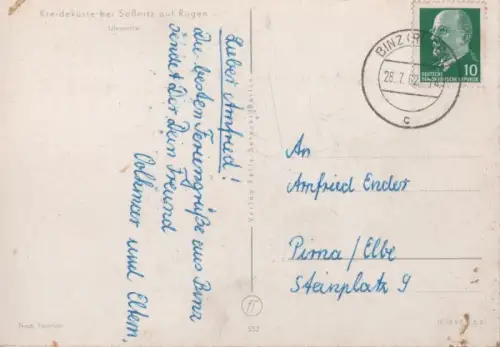 Kreideküste bei Saßnitz auf Rügen
Lieber Arnfried!
Die besten Feriengrüße aus Binz
sendet Dir Dein Freund
Volkmar und Eltern.
BINZ
28.7.62
c
10
DEUTSCHE
DEMOKRATISCHE REPUBLIK
An
Arnfried Ender
Pirna/Elbe
Steinplatz 9